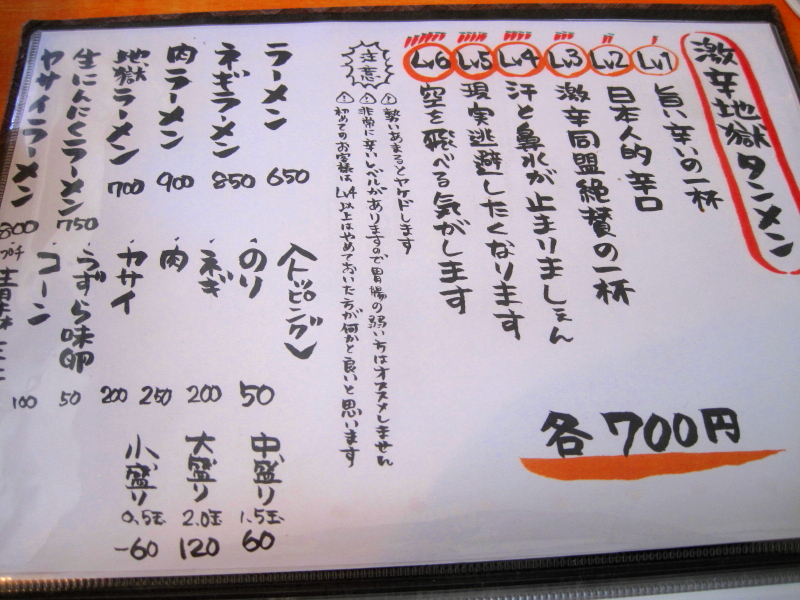 激辛地獄タンメン
Lv1 旨い辛いの一杯
Lv2 日本人的辛口
Lv3 激辛同盟絶賛の一杯
Lv4 汗と鼻水が止まりましぇん
Lv5 現実逃避したくなります
Lv6 空を飛べる気がします
各700円
注意
勢いあまるとヤケドします
非常に辛いレベルがありますので胃腸の弱い方はオススメしません
初めてのお客様はLv4以上はやめておいた方が何かと良いと思います
ラーメン 650
ネギラーメン 850
肉ラーメン 900
地獄ラーメン 700
生にんにくラーメン 750
ヤサイラーメン 800
〈トッピング〉
・のり 50
・ネギ 200
・肉 250
・ヤサイ 200
・うずら味卵 50
・コーン 100
中盛り 1.5玉 60
大盛り 2.0玉 120
小盛り 0.5玉 -60